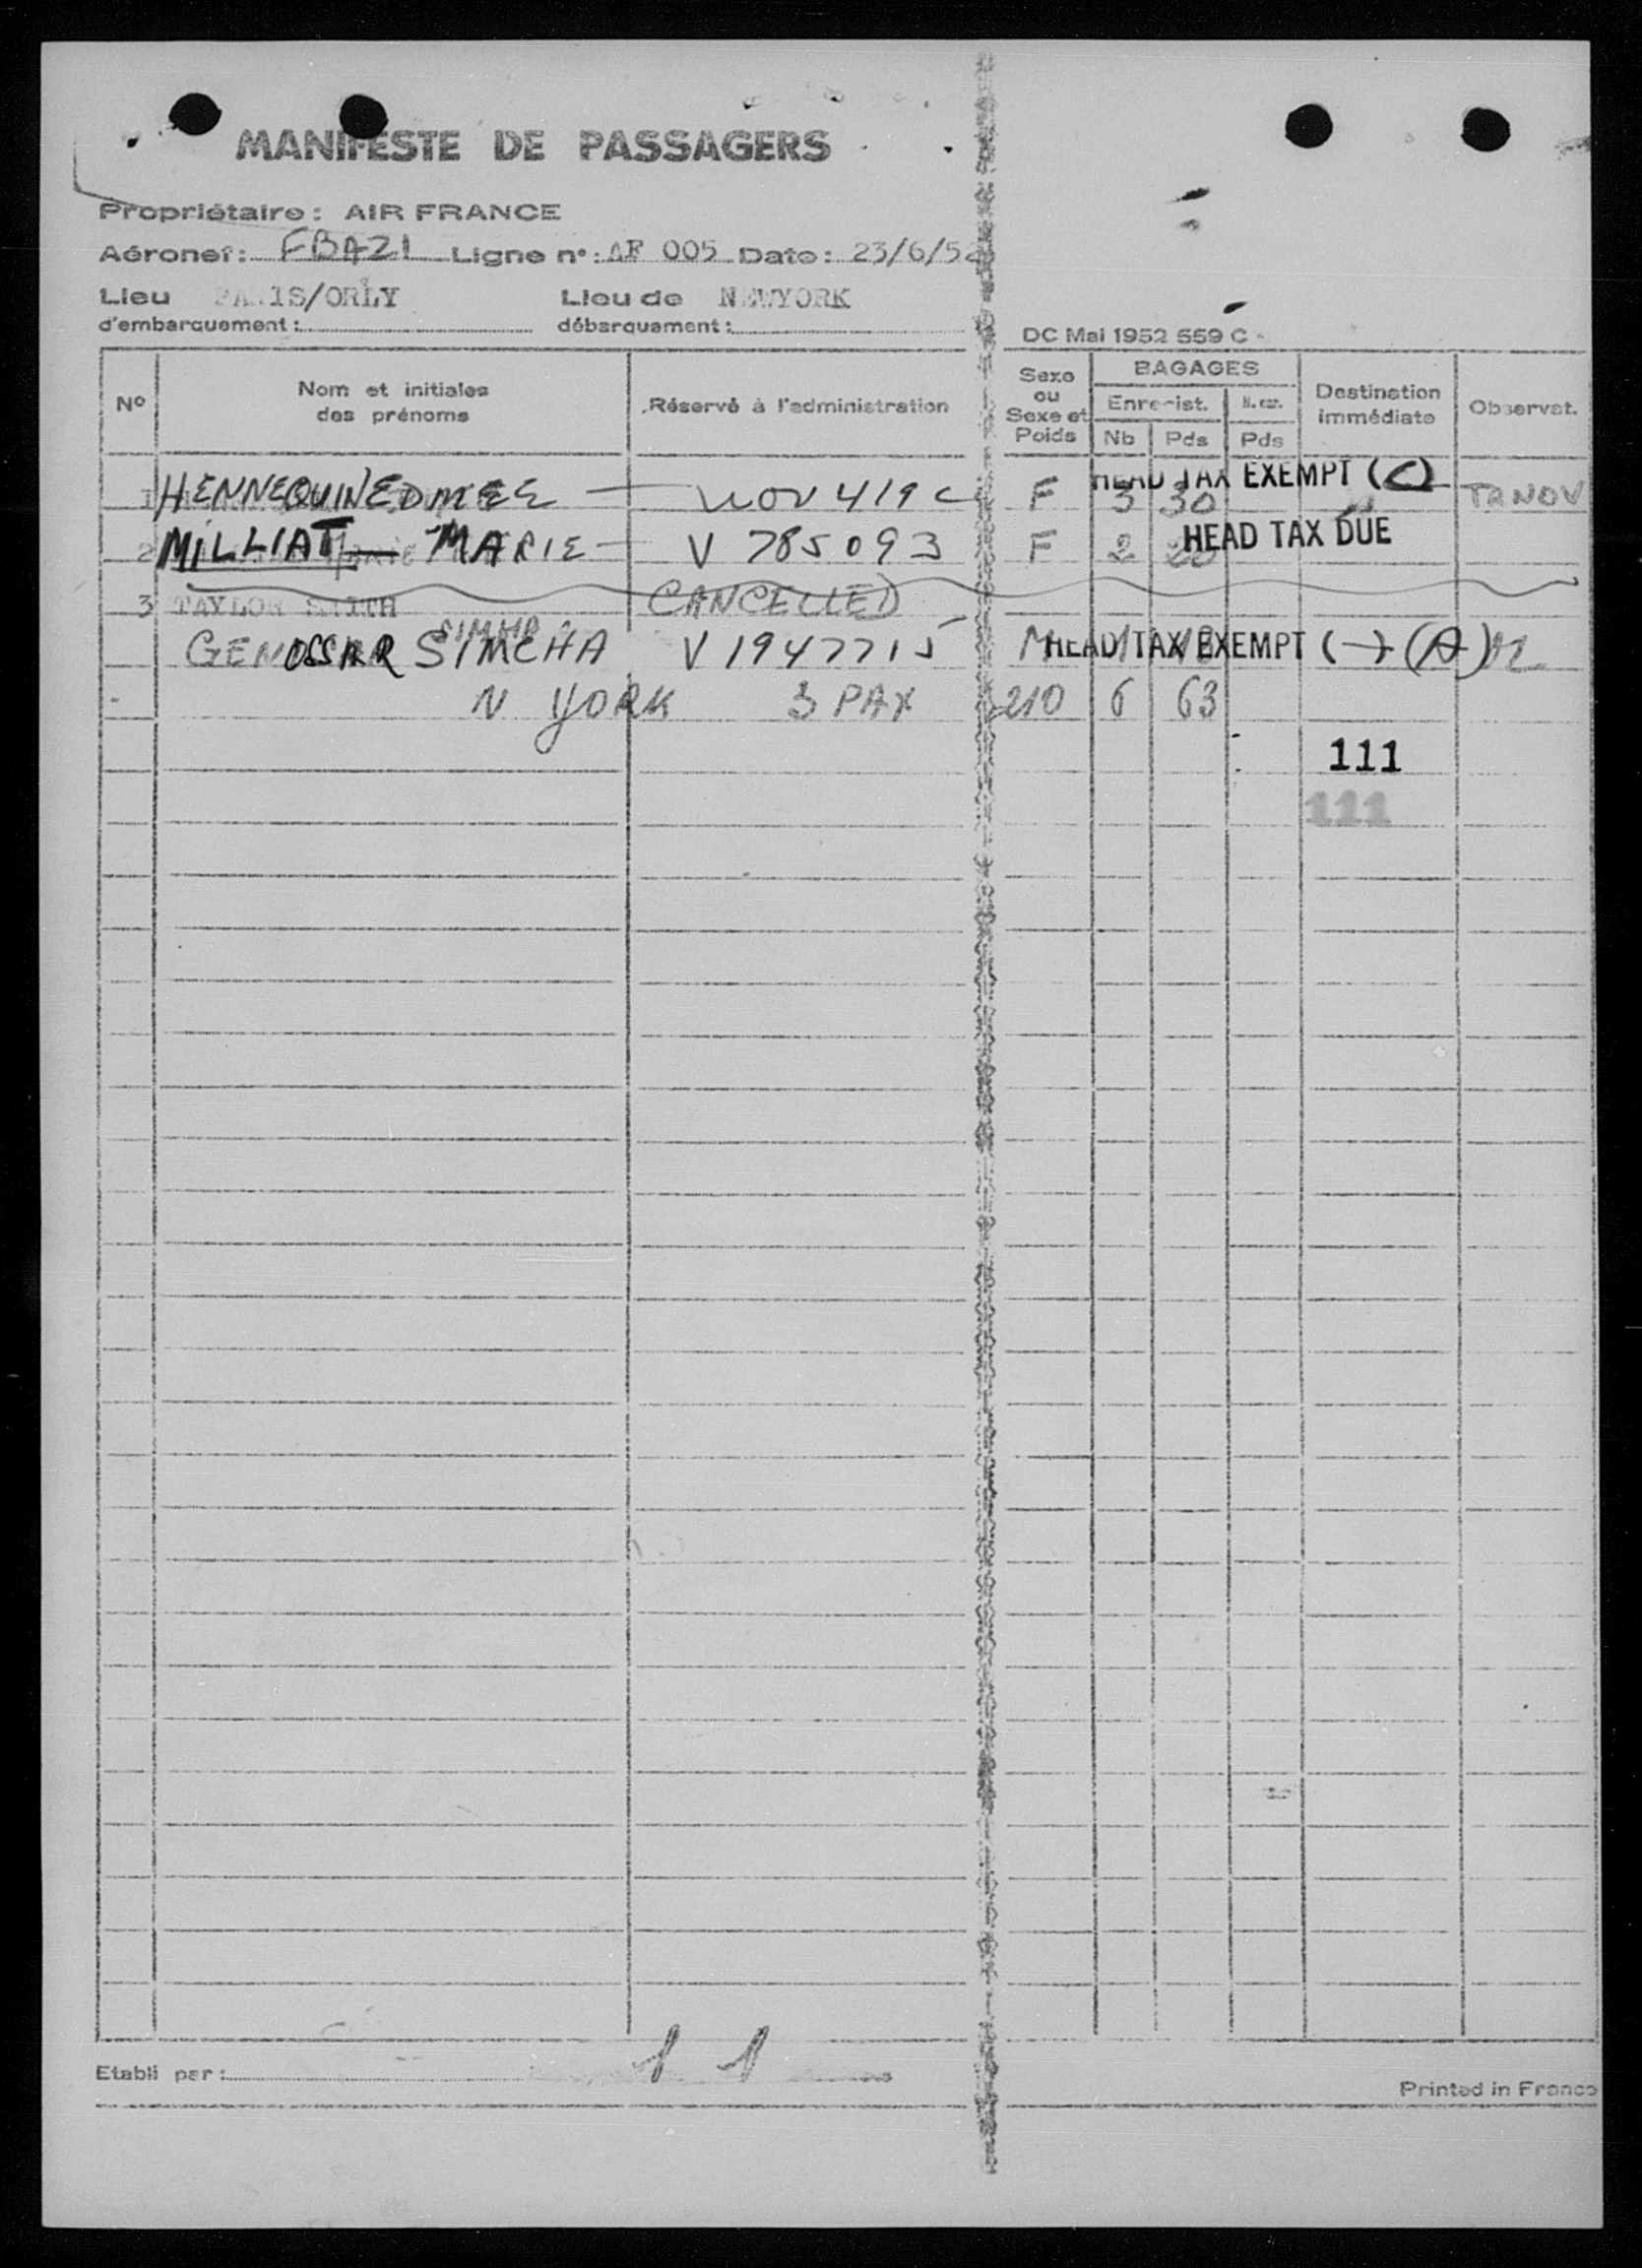 MANIFESTE DE PASSAGERS
Propriétaire: AIR FRANCE
Aéronef: FBAZI Ligne n°: AF 005 Date: 23/6/52
Lieu d'embarquement: PARIS/ORLY Lieu de débarquement: NEWYORK
DC Mai 1952 559 C
N° Nom et initiales des prénoms Réservé à l'administration Sexe ou Sexe et Poids BAGAGES Enregist. Nb Pds Pds Destination immédiate Observat.
1 HENNEQUIN EDMEE NOV 419 F 3 30 HEAD TAX EXEMPT (C) TR NOV
2 MILLIAT MARIE V 785093 F 2 20 HEAD TAX DUE
3 TAYLOR SMITH CANCELLED
GENOSSAR SIMCHA V 1947715 M HEAD TAX EXEMPT (A)
N YORK 3 PAX 210 6 63
111
111
Etabli par:
Printed in France